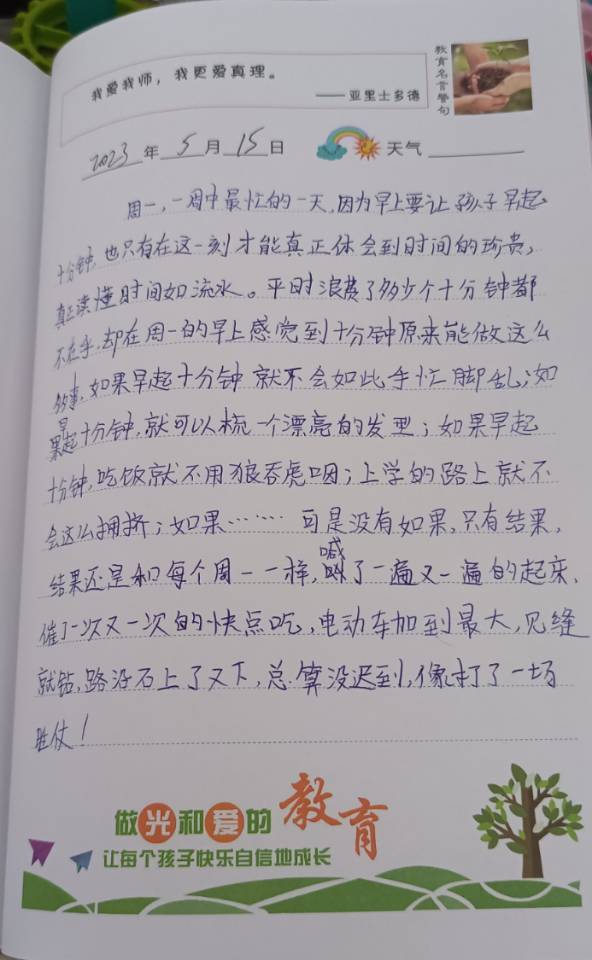 我爱我师，我更爱真理。
——亚里士多德
教育名言警句
2023年5月15日 天气
周一，一周中最忙的一天，因为早上要让孩子早起
十分钟，也只有在这一刻才能真正体会到时间的珍贵，
真正读懂时间如流水。平时浪费了多少个十分钟都
不在乎，却在周一的早上感觉到十分钟原来能做这么
多事，如果早起十分钟就不会如此手忙脚乱；如
果早起十分钟，就可以梳一个漂亮的发型；如果早起
十分钟，吃饭就不用狼吞虎咽；上学的路上就不
会这么拥挤；如果……可是没有如果，只有结果，
结果还是和每个周一一样，喊了一遍又一遍的起床，
催了一次又一次的快点吃，电动车加到最大，见缝
就钻，路沿石上了又下，总算没迟到，像打了一场
胜仗！
做光和爱的教育
让每个孩子快乐自信地成长